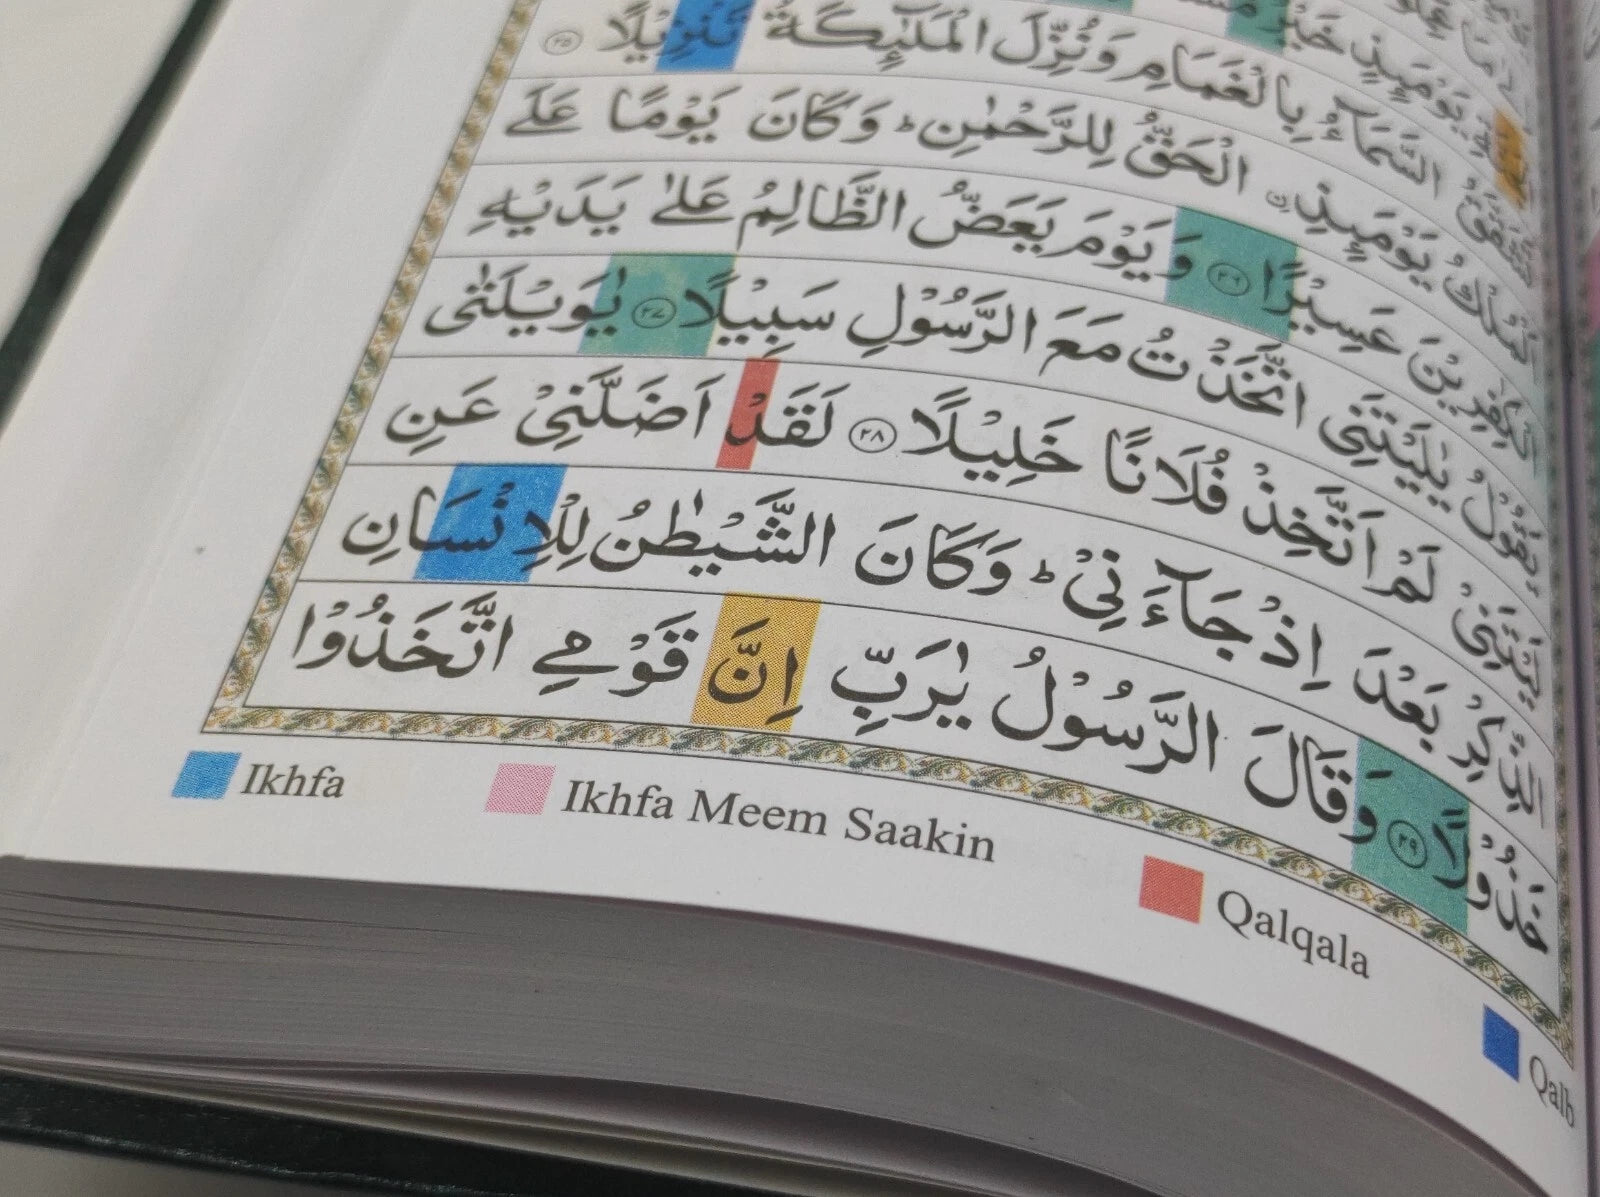 يَوْمَئِذٍ خَيْرٌ
السَّمَآءُ بِالْغَمَامِ وَنُزِّلَ الْمَلٰٓئِكَةُ تَنْزِيْلًا ﴿۲۵﴾
اَلْمُلْكُ يَوْمَئِذِ اۨلْحَقُّ لِلرَّحْمٰنِ ؕ وَكَانَ يَوْمًا عَلَى
الْكٰفِرِيْنَ عَسِيْرًا ﴿۲۶﴾ وَيَوْمَ يَعَضُّ الظَّالِمُ عَلٰى يَدَيْهِ
يَقُوْلُ يٰلَيْتَنِى اتَّخَذْتُ مَعَ الرَّسُوْلِ سَبِيْلًا ﴿۲۷﴾ يٰوَيْلَتٰى
لَيْتَنِىْ لَمْ اَتَّخِذْ فُلَانًا خَلِيْلًا ﴿۲۸﴾ لَقَدْ اَضَلَّنِىْ عَنِ
الذِّكْرِ بَعْدَ اِذْ جَآءَنِىْ ؕ وَكَانَ الشَّيْطٰنُ لِلْاِنْسَانِ
خَذُوْلًا ﴿۲۹﴾ وَقَالَ الرَّسُوْلُ يٰرَبِّ اِنَّ قَوْمِى اتَّخَذُوْا
Ikhfa Ikhfa Meem Saakin Qalqala Qalb